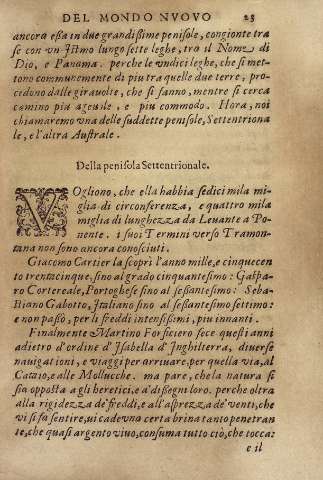 DEL MONDO NVOVO 23
ancora eßa in due grandißime penisole, congionte tra
se con vn Istmo lungo sette leghe, trà il Nome di
Dio, e Panama. perche le vndici leghe, che si met-
tono communemente di piu tra quelle due terre, pro-
cedono dalle girauolte, che si fanno, mentre si cerca
camino piu ageuole, e piu commodo. Hora, noi
chiamaremo vna delle suddette penisole, Settentriona
le, e l'altra Australe.
Della penisola Settentrionale.
VOgliono, che ella habbia sedici mila mi-
glia di circonferenza, e quattro mila
miglia di lunghezza da Leuante a Po-
nente. i suoi Termini verso Tramon-
tana non sono ancora conosciuti.
Giacomo Cartier la scoprì l'anno mille, e cinquecen
to trentacinque, sino al grado cinquantesimo: Gaspa-
ro Cortereale, Portoghese sino al seßantesimo: Seba-
stiano Gabotto, Italiano sino al seßantesimo settimo:
e non paßò, per li freddi intensißimi, piu innanti.
Finalmente Martino Forficiero fece questi anni
adietro d'ordine d'Isabella d'Inghilterra, diuerse
nauigationi, e viaggi per arriuare, per quella via, al
Cataio, e alle Mollucche. ma pare, che la natura si
sia opposta a gli heretici, e a' disegni loro. perche oltra
alla rigidezza de' freddi, e all'asprezza de' venti, che
vi si fa sentire, ui cade vno certa brina tanto penetran
te, che quasi argento viuo, consuma tutto ciò, che tocca:
e il